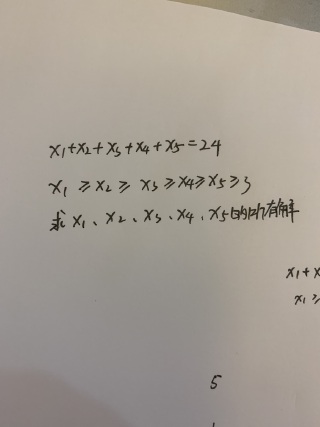 x₁+x₂+x₃+x₄+x₅=24
x₁≥x₂≥x₃≥x₄≥x₅≥3
求x₁、x₂、x₃、x₄、x₅的所有解
x₁+x
x₁≥
5